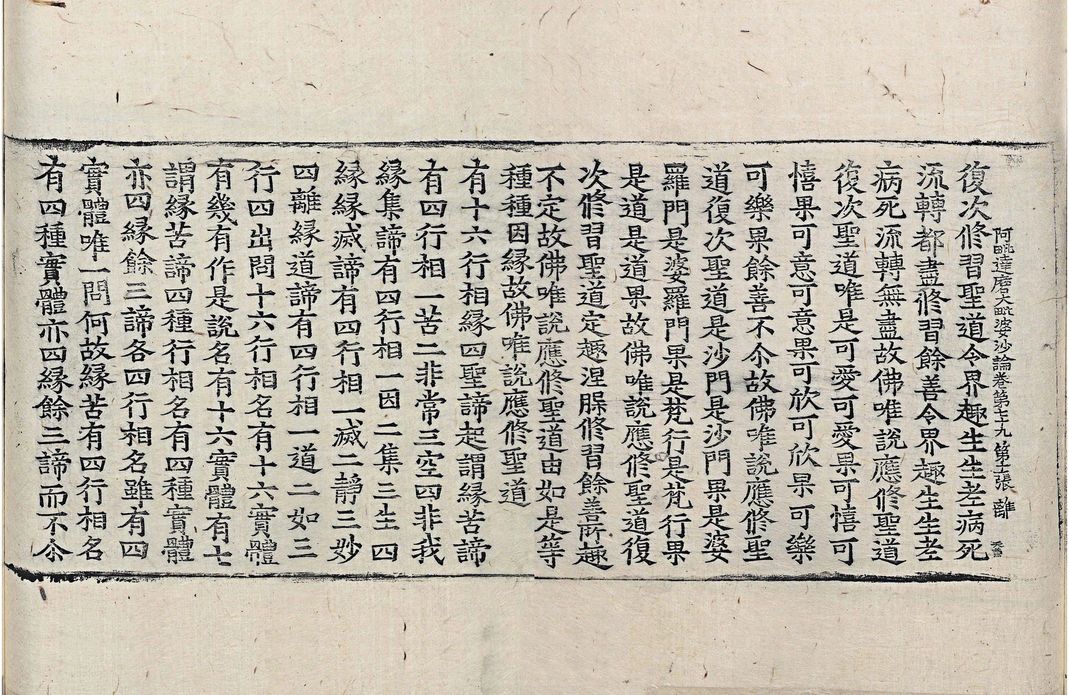 阿毗達磨大毗婆沙論卷第七十九 第十一張 雖
復次修習聖道令界趣生生老病死
流轉都盡修習餘善令界趣生生老
病死流轉無盡故佛唯說應修聖道
復次聖道唯是可愛可愛果可憘可
憘果可意可意果可欣可欣果可樂
可樂果餘善不尒故佛唯說應修聖
道復次聖道是沙門是沙門果是婆
羅門是婆羅門果是梵行是梵行果
是道是道果故佛唯說應修聖道復
次修習聖道定趣涅槃修習餘善所趣
不定故佛唯說應修聖道由如是等
種種因緣故佛唯說應修聖道
有十六行相緣四聖諦起謂緣苦諦
有四行相一苦二非常三空四非我
緣集諦有四行相一因二集三生四
緣緣滅諦有四行相一滅二靜三妙
四離緣道諦有四行相一道二如三
行四出問十六行相名有十六實體
有幾有作是說名有十六實體有七
謂緣苦諦四種行相名有四種實體
亦四緣餘三諦各四行相名雖有四
實體唯一問何故緣苦有四行相名
有四種實體亦四緣餘三諦而不尒